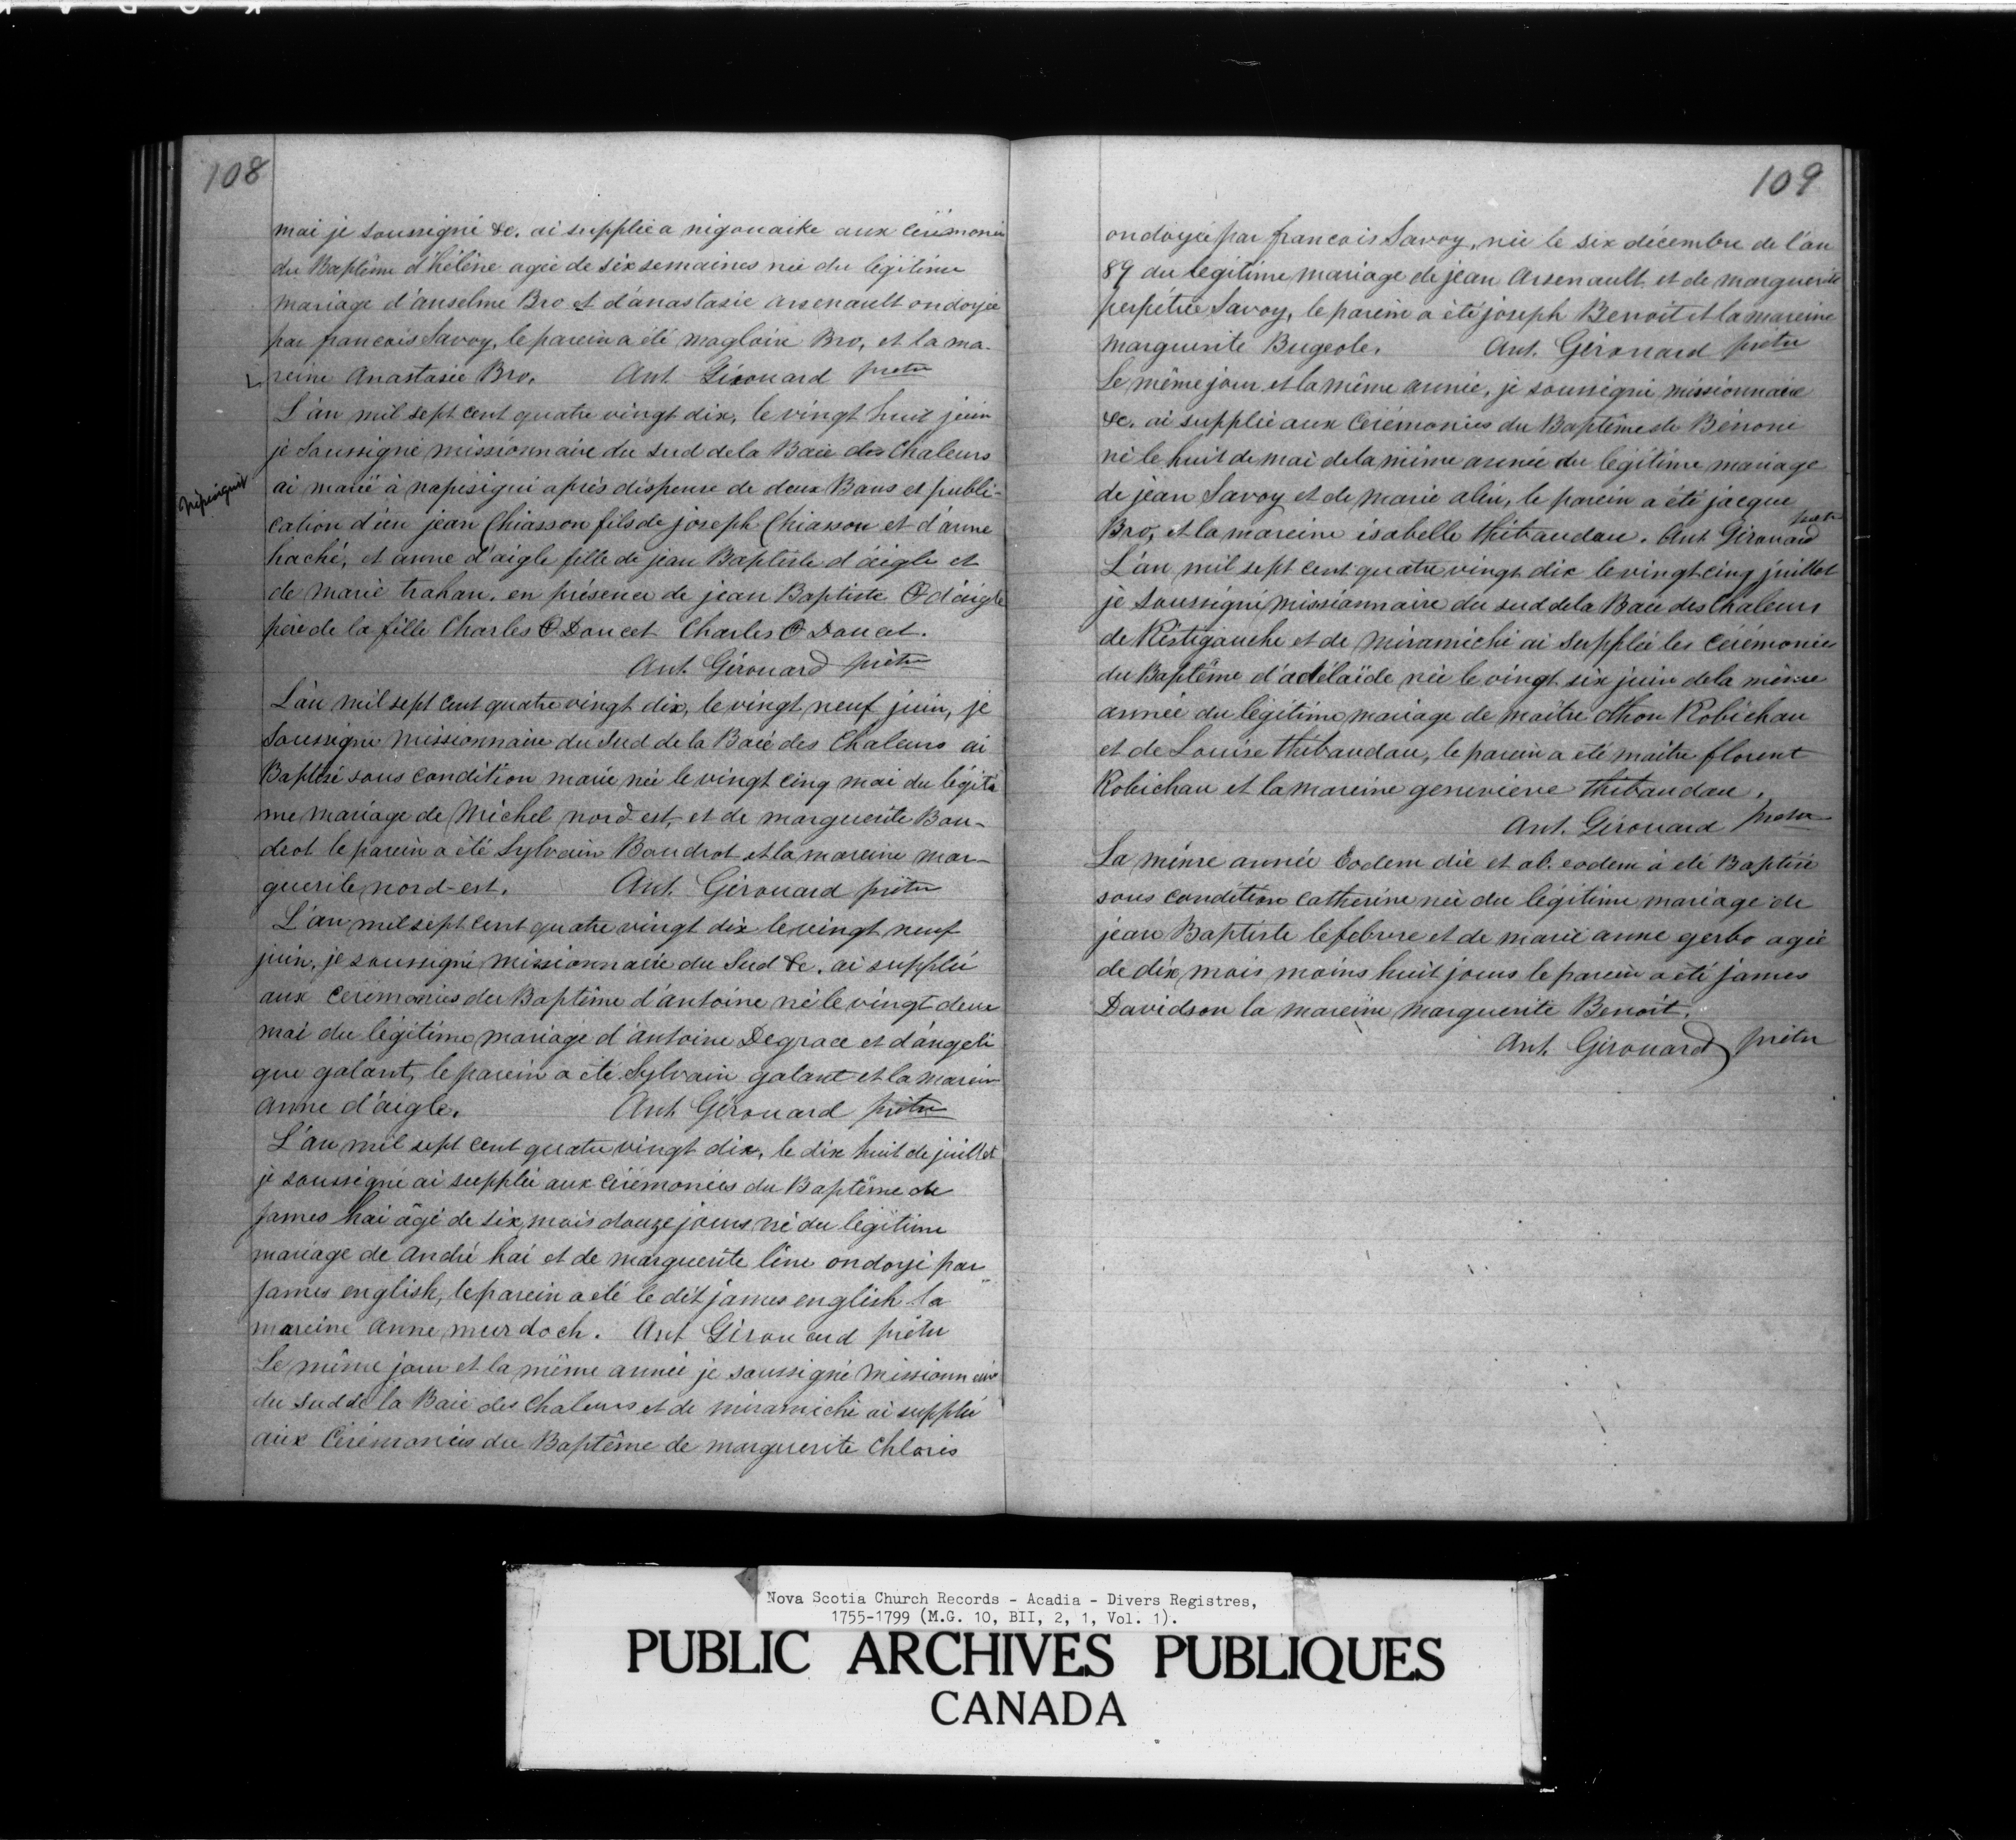 108
mai je soussigné &c. ai supplié a nigouaike aux cérémonies
du Baptême d'hélène agée de six semaines née du légitime
mariage d'anselme Bro et d'anastasie arsenault ondoyée
par francois Savoy, le parein a été magloire Bro, et la ma-
reine Anastasie Bro. Ant Girouard prêtre
L'an mil sept cent quatre vingt dix, le vingt huit juin
je soussigné missionnaire du sud de la Baie des Chaleurs
Népisiguit
ai marié à napisigui après dispense de deux Bans et publi-
cation d'un jean Chiasson fils de joseph Chiasson et d'anne
haché, et anne d'aigle fille de jean Baptiste d'aigle et
de marie trahan. en présence de jean Baptiste d'aigle
père de la fille Charles Doucet Charles Doucet.
Ant. Girouard prêtre
L'an mil sept cent quatre vingt dix, le vingt neuf juin, je
soussigné missionnaire du Sud de la Baie des Chaleurs ai
Baptisé sous condition marie née le vingt cinq mai du légiti
me mariage de Michel nord est, et de marguerite Bou-
drot le parein a été Sylvain Boudrot et la mareine mar-
guerite nord-est. Ant. Girouard prêtre
L'an mil sept cent quatre vingt dix le vingt neuf
juin, je soussigné missionnaire du Sud &c. ai supplié
aux cérémonies du Baptême d'antoine né le vingt deux
mai du légitime mariage d'antoine Degrace et d'angeli
que galant, le parein a été Sylvain galant et la marein
anne d'aigle. Ant Girouard prêtre
L'an mil sept cent quatre vingt dix, le dix huit de juillet
je soussigné ai supplié aux cérémonies du Baptême de
james hai âgé de six mois douze jours né du légitime
mariage de andré hai et de marguerite line ondoyé par
james english, le parein a été le dit james english la
mareine anne murdoch. Ant Girouard prêtre
Le même jour et la même année je soussigné missionnaire
du sud de la Baie des Chaleurs et de miramichi ai supplié
aux Cérémonies du Baptême de marguerite Chloris
109
ondoyée par francois Savoy, née le six décembre de l'an
89 du légitime mariage de jean Arsenault et de marguerite
perpétrée Savoy, le parein a été joseph Benoit et la mareine
marguerite Bugeole. Ant. Girouard prêtre
Le même jour et la même année, je soussigné missionnaire
&c. ai supplié aux Cérémonies du Baptême de Bénoni
né le huit de mai de la même année du légitime mariage
de jean Savoy et de marie alin, le parein a été jacque
Bro, et la mareine isabelle thibaudau. Ant Girouard prêtre
L'an mil sept cent quatre vingt dix le vingt cinq juillet
je soussigné missionnaire du sud de la Baie des Chaleurs
de Restigouche et de miramichi ai supplié les Cérémonies
du Baptême d'adélaïde née le vingt six juin de la même
année du légitime mariage de maitre othon Robichau
et de Louise thibaudau, le parein a été maitre florent
Robichau et la mareine genevieve thibaudau.
Ant. Girouard prêtre
La même année Eodem die et ab. eodem à été Baptisée
sous condition catherine née du légitime mariage de
jean Baptiste lefebvre et de marie anne gerbo agée
de dix mois moins huit jours le parein a été james
Davidson la mareine marguerite Benoit.
Ant. Girouard prêtre
Nova Scotia Church Records - Acadia - Divers Registres,
1755-1799 (M.G. 10, BII, 2, 1, Vol. 1).
PUBLIC ARCHIVES PUBLIQUES
CANADA